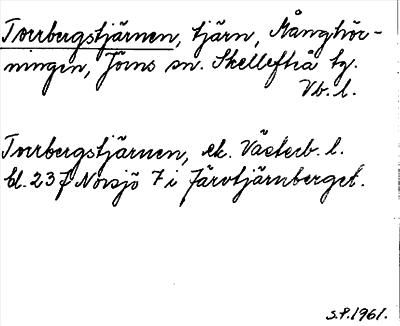 Torrbergstjärnen, tjärn, Månghör-
ningen, Jörns sn. Skellefteå tg.
Vb. l.
Torrbergstjärnen, ek. Västerb. l.
bl. 237 Norsjö 7 i Järvtjärnberget.
S.P. 1961.